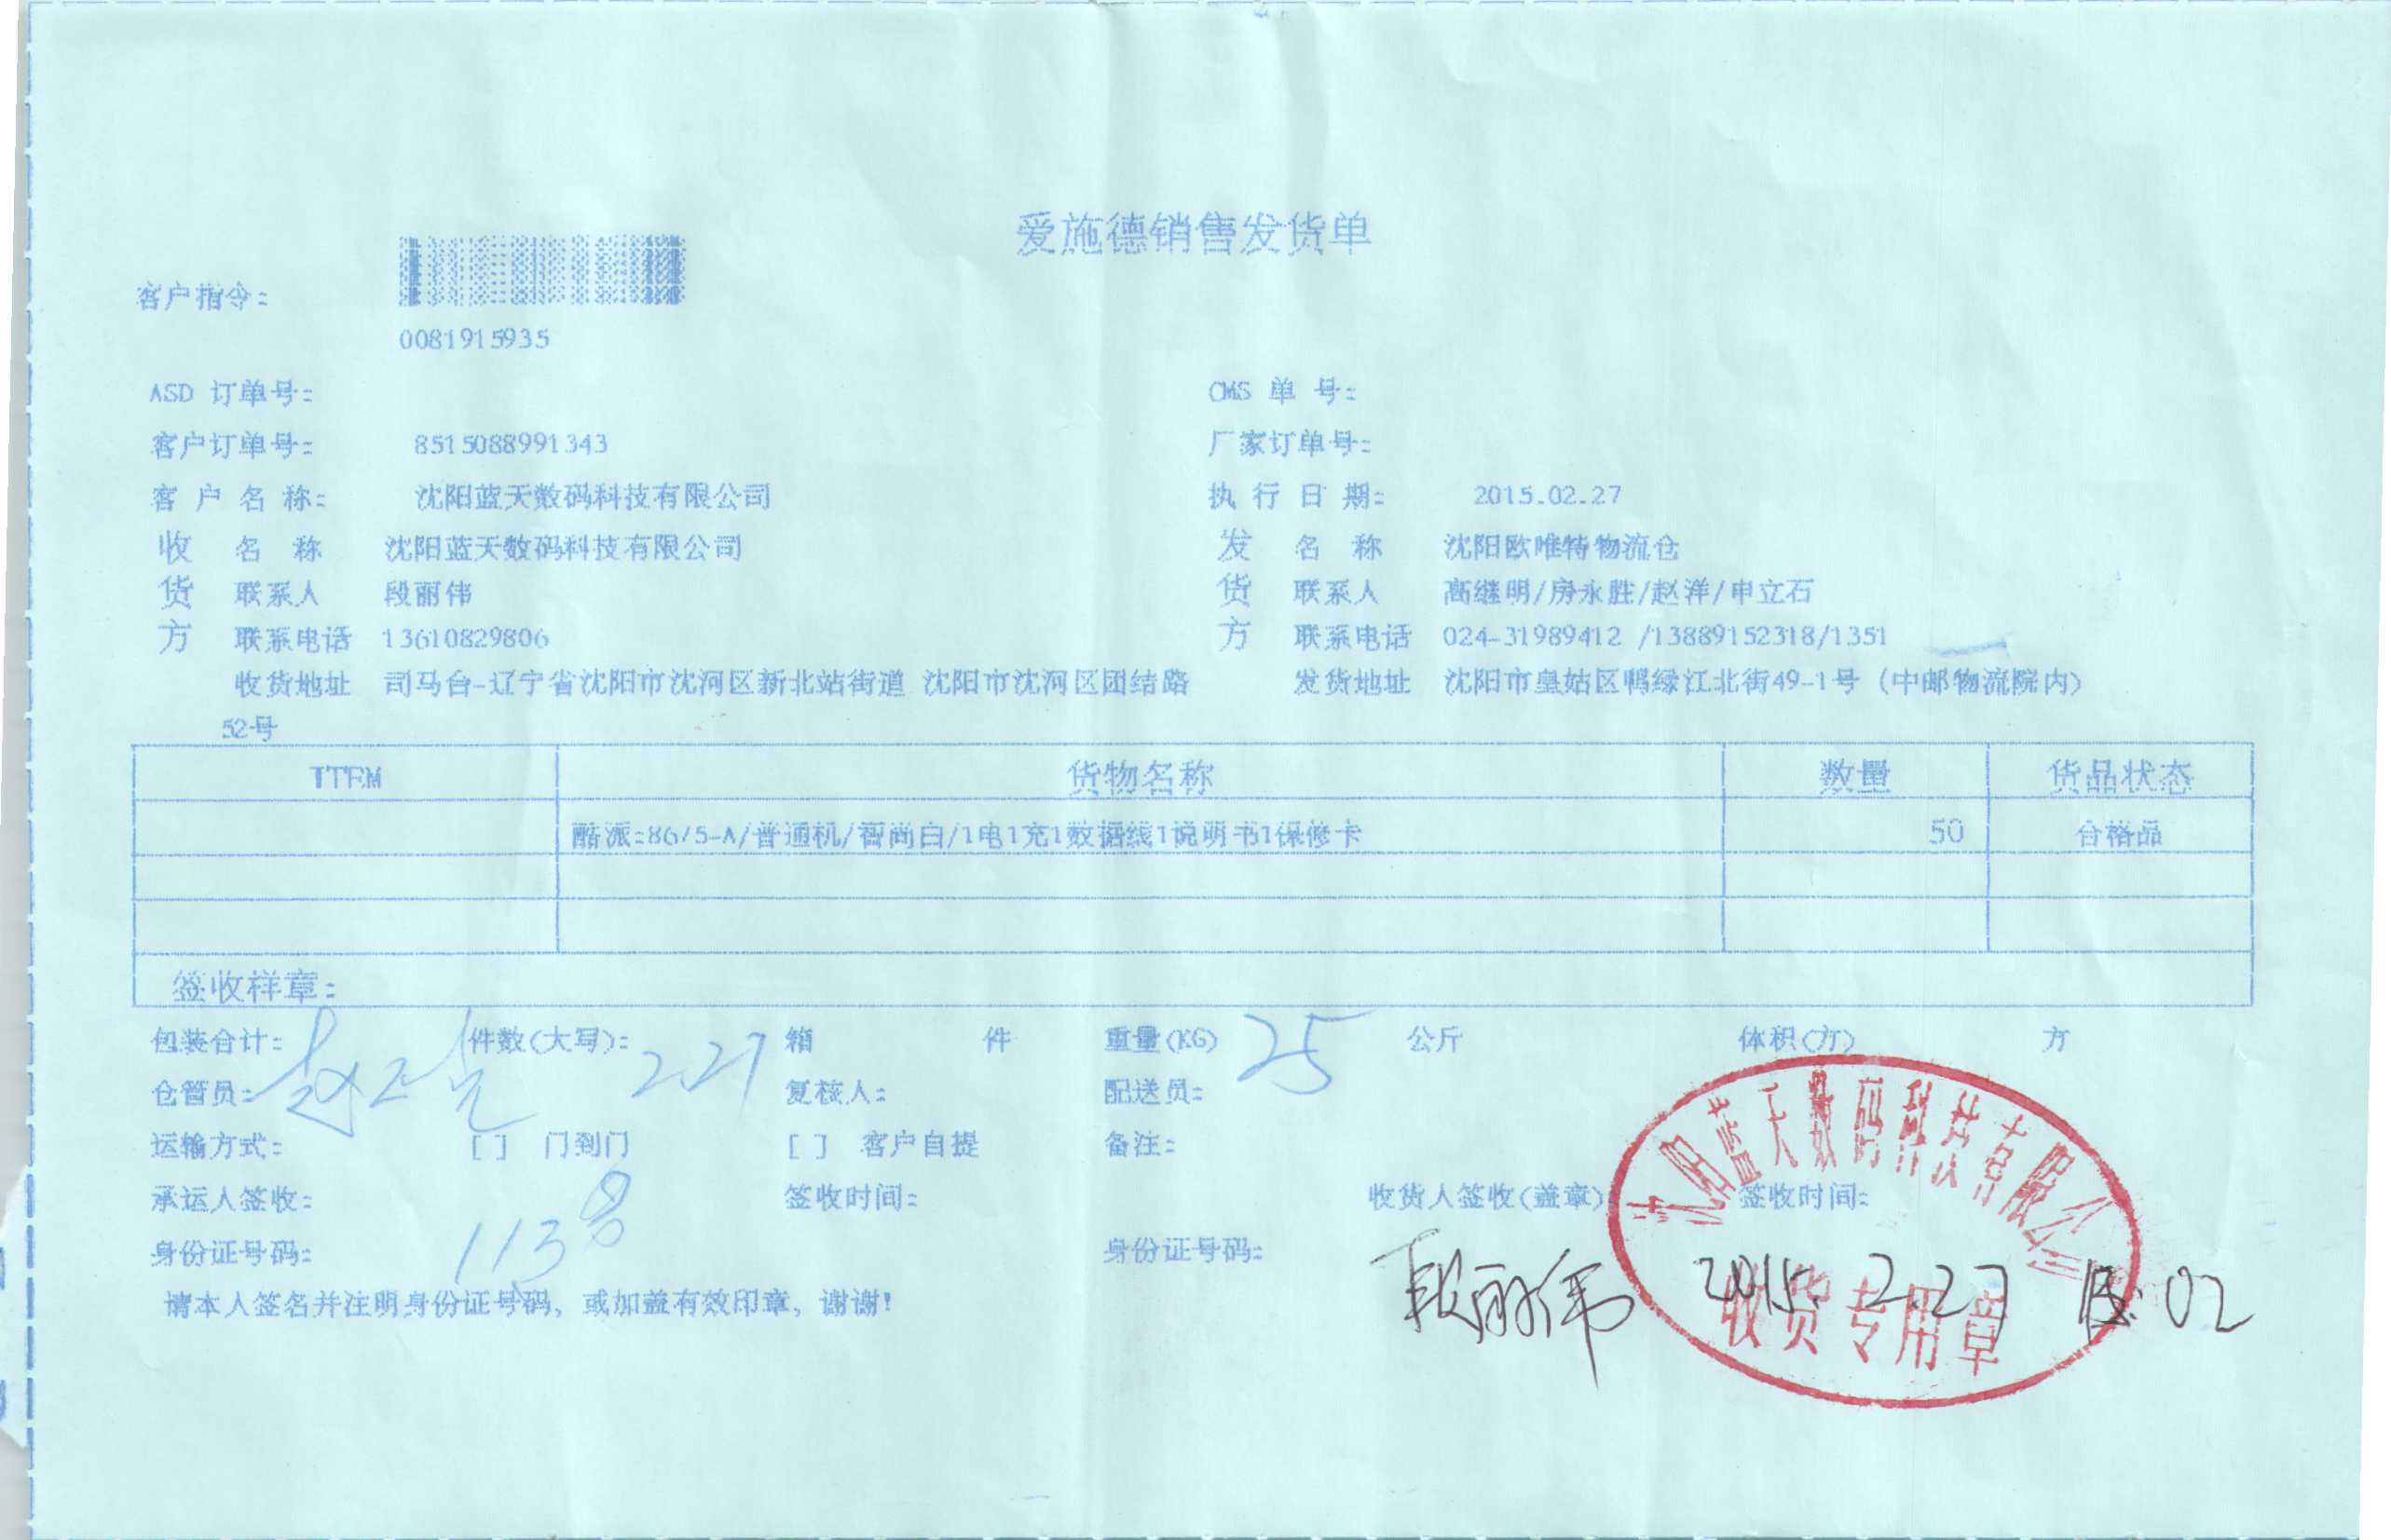 爱施德销售发货单
客户指令:
0081915935
ASD 订单号: CMS 单 号:
客户订单号: 8515088991343 厂家订单号:
客 户 名 称: 沈阳蓝天数码科技有限公司 执 行 日 期: 2015.02.27
收 名 称 沈阳蓝天数码科技有限公司 发 名 称 沈阳欧唯特物流仓
货 联系人 段丽伟 货 联系人 高继明/房永胜/赵洋/申立石
方 联系电话 13610829806 方 联系电话 024-31989412 /13889152318/1351
收货地址 司马台-辽宁省沈阳市沈河区新北站街道 沈阳市沈河区团结路 发货地址 沈阳市皇姑区鸭绿江北街49-1号 (中邮物流院内)
52号
ITEM 货物名称 数量 货品状态
酷派:8675-A/普通机/智尚白/1电1充1数据线1说明书1保修卡 50 合格品
签收样章:
包装合计: 件数(大写): 箱 件 重量(KG) 25 公斤 体积(方) 方
仓管员: 2.27 复核人: 配送员:
运输方式: [ ] 门到门 [ ] 客户自提 备注:
承运人签收: 签收时间: 收货人签收(盖章) 签收时间:
身份证号码: 113号 身份证号码: 段丽伟 2015. 2.27
请本人签名并注明身份证号码, 或加盖有效印章, 谢谢!
沈阳蓝天数码科技有限公司
收货专用章